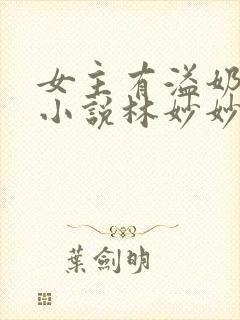 女主有溢奶
小說林妙妙
葉劍明